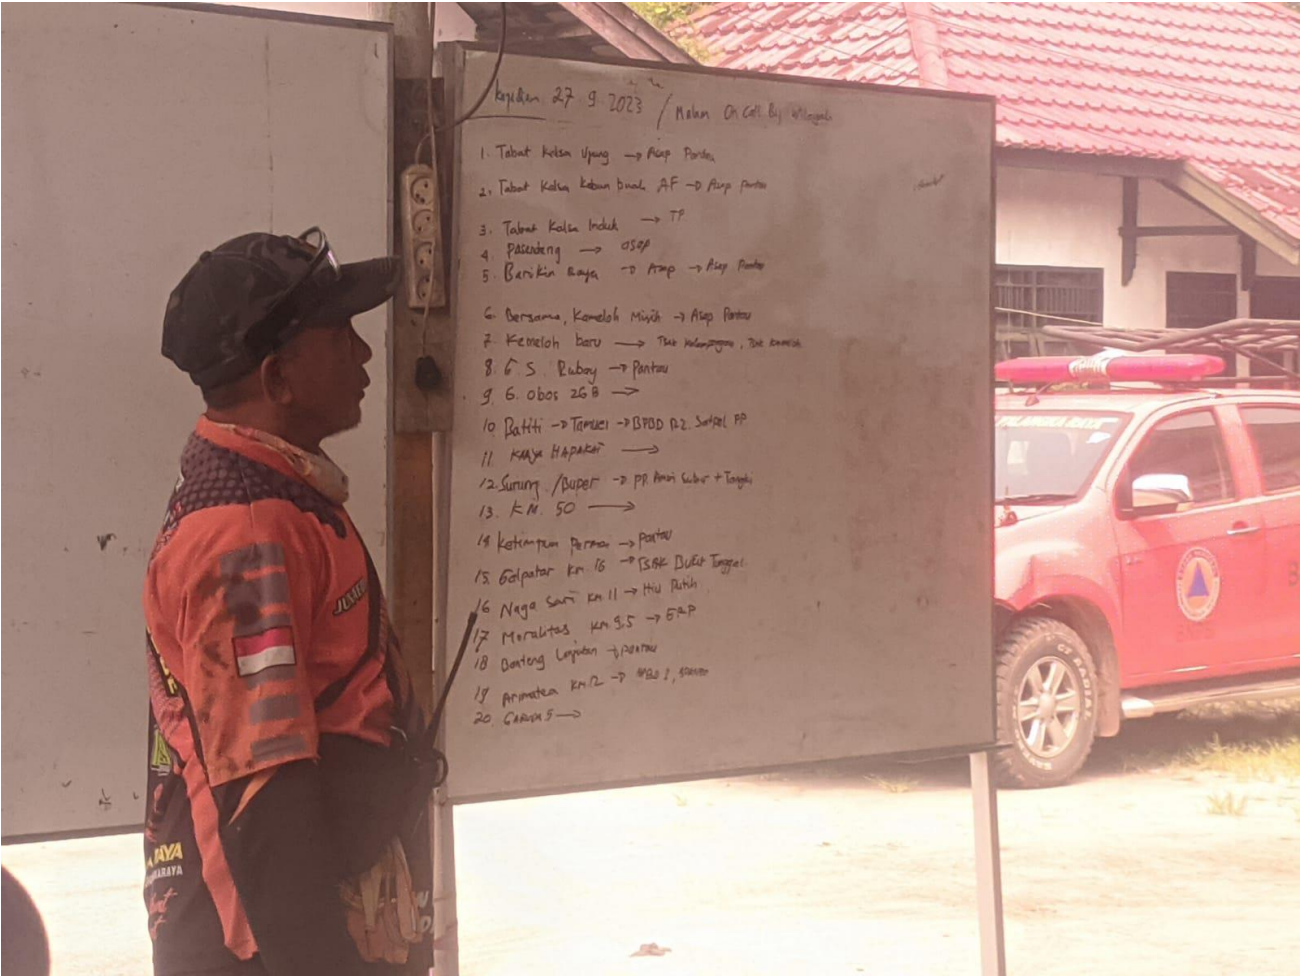 Kegiatan 27.9.2023 / Malam On Call By Wilayah
1. Tabat Kalsa Ujung → Asap Pantau
2. Tabat Kalsa Kebun buah AF → Asap Pantau
3. Tabat Kalsa Induk → TP
4. → asap
5. Barikin Raya → Asap → Asap Pantau
6. Bersama, Kameloh Misih → Asap Pantau
7. Kemeloh baru →
8. G. S. Rubay → Pantau
9. G. Obos 26B →
10. Batiti → Tamuei → BPBD Satpol PP
11. KARYA HAPAKAT →
12. Surung / Buper → PP.
13. KM. 50 →
14. Ketimpun Permai → Pantau
15. km. 16 → TSAK Bukit Tunggal
16. Naga Sari Km 11 → Hiu Putih
17. Moralitas km. 9,5 → ERP
18. Banteng Lanjutan → pantau
19. Arimatea km 12 →
20. GARUDA 5 →
PALANGKA RAYA
BNPB
GT RADIAL
RAYA